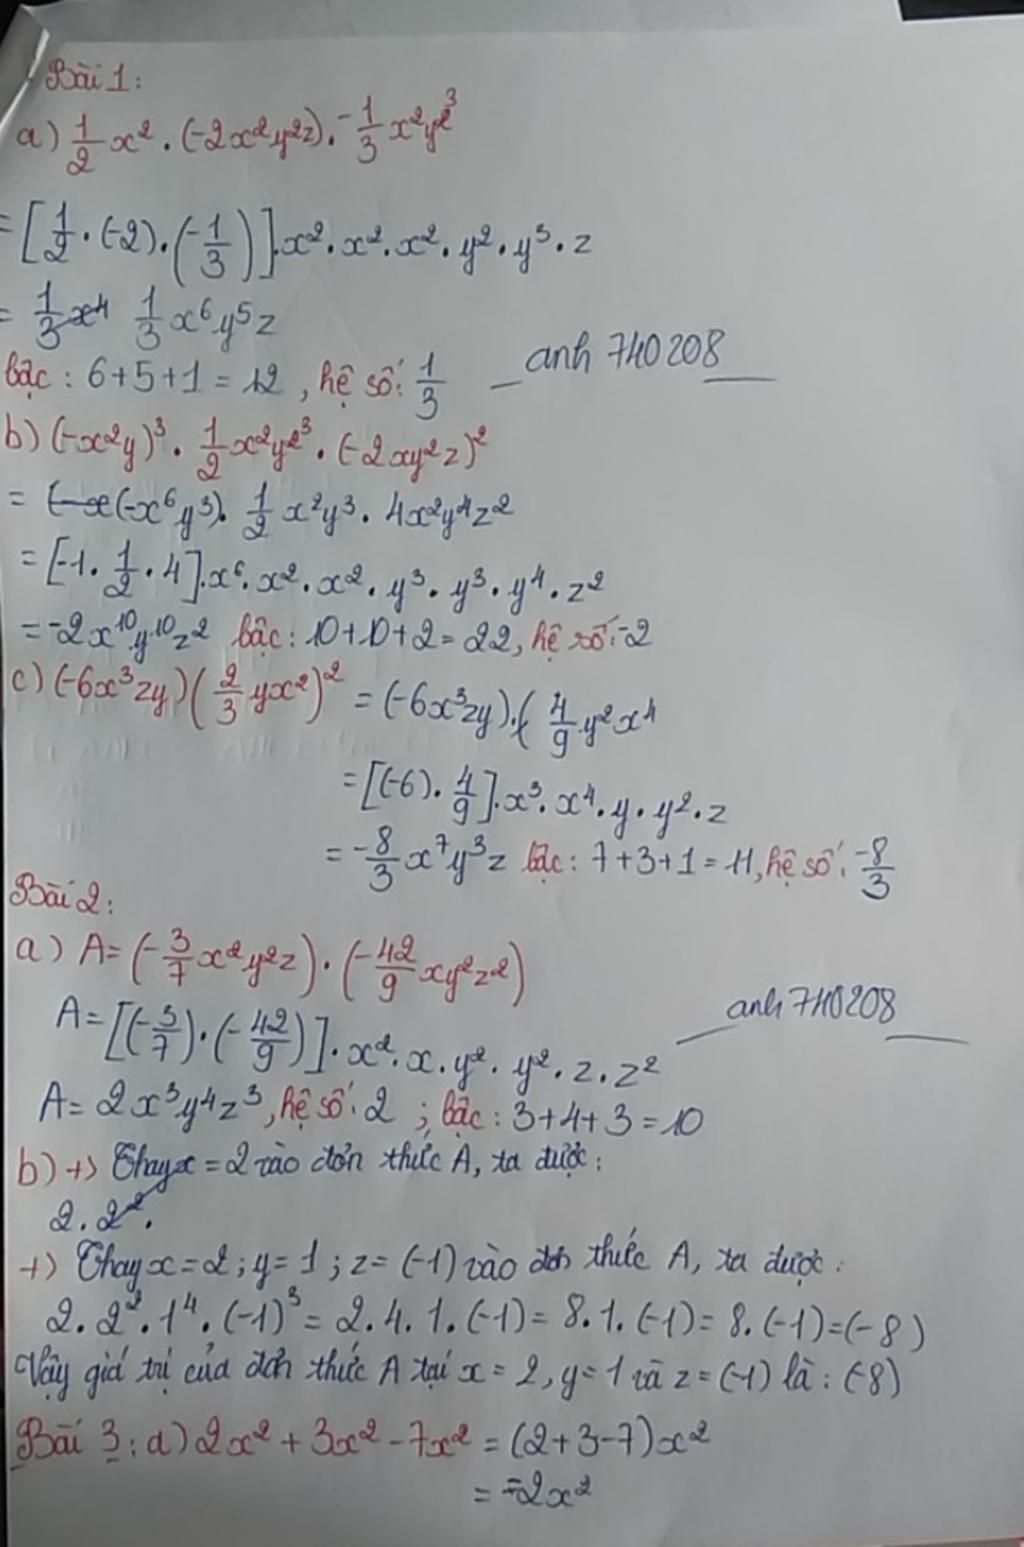 Bài 1:
a) 1/2 x². (-2x²y²z). -1/3 x²y³
= [1/2 . (-2). (-1/3)].x². x². x². y². y³. z
= 1/3 x⁴ 1/3 x⁶y⁵z
bậc: 6+5+1 = 12, hệ số: 1/3
anh 740208
b) (-x²y)³. 1/2 x²y³. (-2xy²z)²
= (-x (-x⁶y³). 1/2 x²y³. 4x²y⁴z²
= [-1. 1/2 . 4].x⁶. x². x². y³. y³. y⁴. z²
= -2x¹⁰y¹⁰z² bậc: 10+10+2= 22, hệ số: -2
c) (-6x³zy)(2/3 yx²)² = (-6x³zy).( 4/9 y²x⁴
= [(-6). 4/9].x³. x⁴. y. y². z
= -8/3 x⁷y³z bậc: 7+3+1 = 11, hệ số: -8/3
Bài 2:
a) A= (-3/7 x²y²z). (-42/9 xy²z²)
anh 740208
A= [(-3/7).(-42/9)]. x². x. y². y². z. z²
A= 2x³y⁴z³, hệ số: 2 ; bậc: 3+4+3 = 10
b) +> Thay x = 2 vào đơn thức A, ta được:
2. 2².
+> Thay x = 2; y = 1; z = (-1) vào đơn thức A, ta được:
2. 2². 1⁴. (-1)³ = 2. 4. 1. (-1) = 8. 1. (-1) = 8. (-1) = (-8)
Vậy giá trị của đơn thức A tại x = 2, y = 1 và z = (-1) là: (-8)
Bài 3: a) 2x² + 3x² - 7x² = (2+3-7)x²
= -2x²